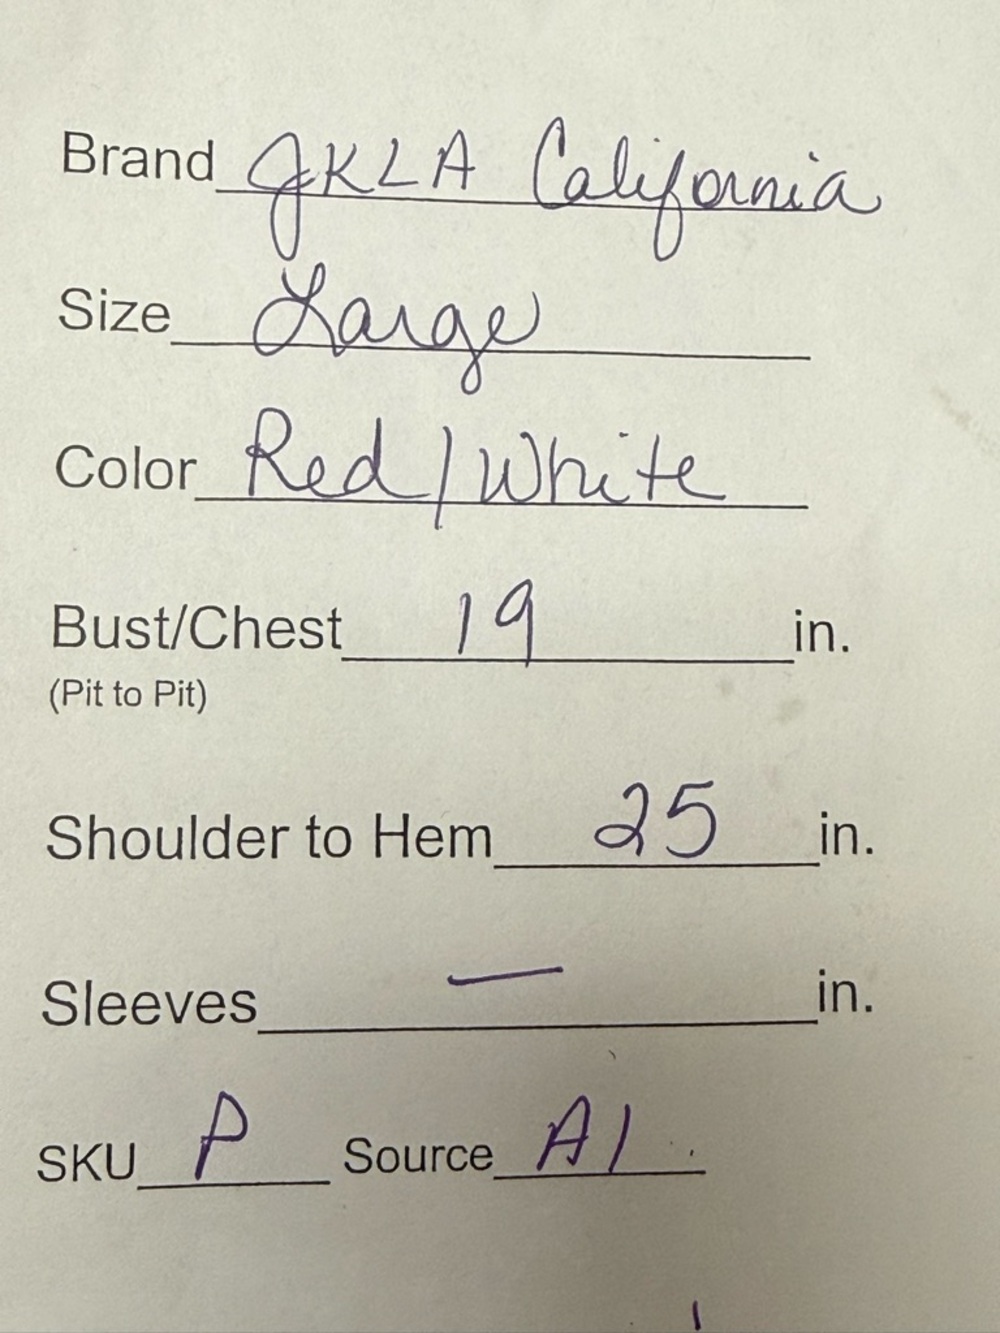 Brand JKLA California
Size Large
Color Red/White
Bust/Chest 19 in.
(Pit to Pit)
Shoulder to Hem 25 in.
Sleeves — in.
SKU P Source A1